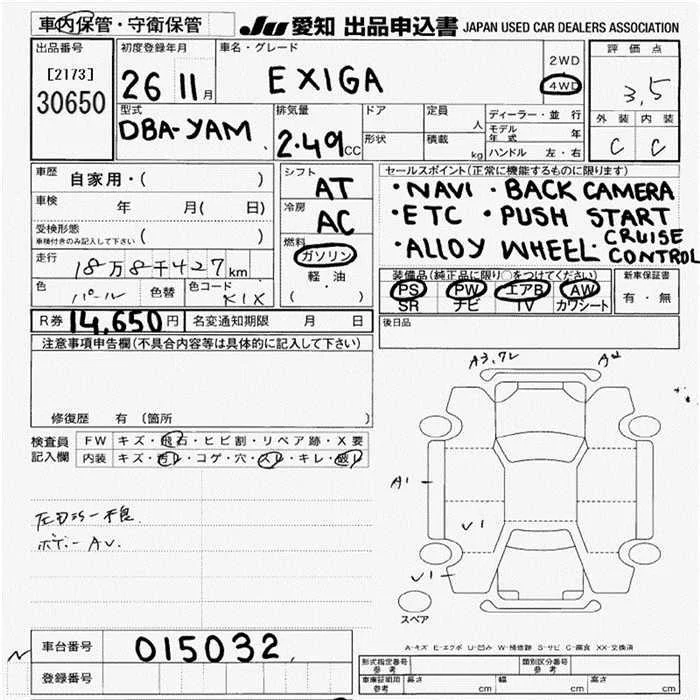 車内保管・守衛保管 JU 愛知 出品申込書 JAPAN USED CAR DEALERS ASSOCIATION
出品番号 初度登録年月 車名・グレード 評価点
[2173] 2WD
30650 26 11月 EXIGA 4WD 3,5
型式 排気量 ドア 定員 人 ディーラー・並行 外装 内装
DBA-YAM 2.49CC 形状 積載 kg モデル年式 年 C C
ハンドル 左・右
車歴 自家用・( ) シフト AT セールスポイント(正常に機能するものに限ります)
車検 年 月( 日) 冷房 AC ・NAVI ・BACK CAMERA
受検形態 ・ETC ・PUSH START
車検付きのみ記入して下さい ( ) 燃料 ・ALLOY WHEEL・CRUISE CONTROL
走行 18万8千427km ガソリン 装備品(純正品に限り○をつけてください) 新車保証書
色 パール 色替 色コード K1X 軽・油 PS PW エアB AW 有・無
( ・ ) SR ナビ TV カワシート
R券 14,650円 名変通知期限 月 日 後日品
注意事項申告欄(不具合内容等は具体的に記入して下さい)
修復歴 有 〔箇所
検査員 FW キズ・飛石・ヒビ割・リペア跡・X要
記入欄 内装 キズ・汚レ・コゲ・穴・スレ・キレ・破レ
ボデー AU.
A3,
A1
U1
U1
スペア
A-キズ E-エクボ U-凹み W-補修跡 S-サビ C-腐食 XX-交換済
車台番号 015032
登録番号
形式指定番号 参考 類別区分番号 参考
車庫証明用 参考 長さ cm 幅 cm 高さ cm